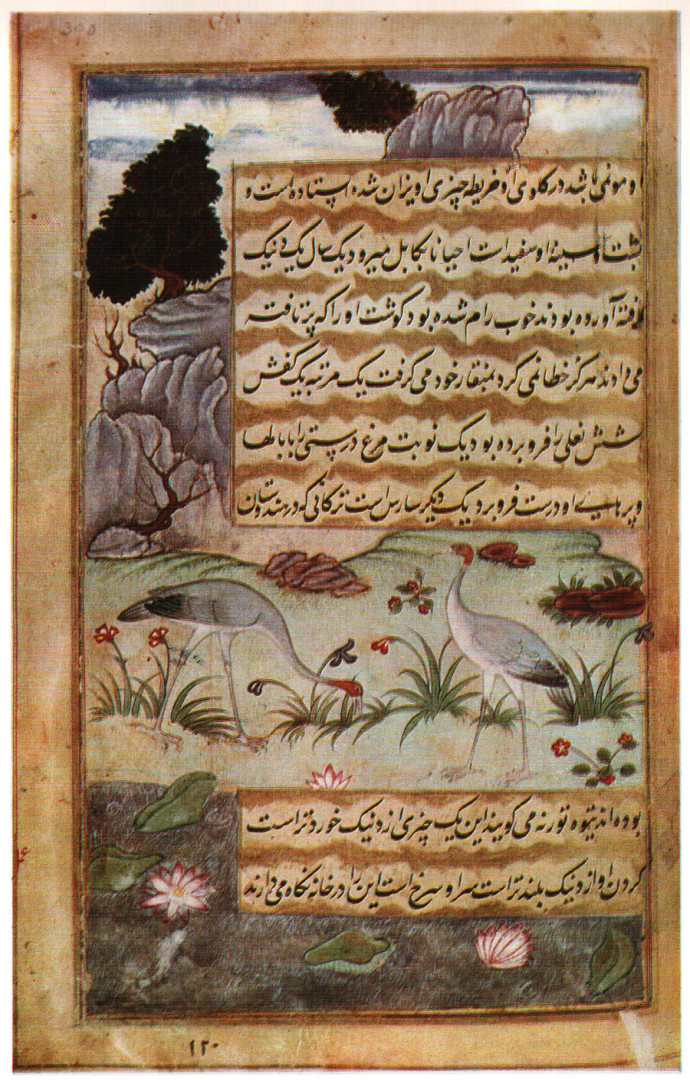 390
او مو نمی باشد در گلوی او خریطه چیزی اویزان شده ایستاده است و
پشت و سینهٔ او سفید است احیانا بکابل میرود یک سال یک دنیک
آورده بودند خوب رام شده بود گوشت او را که پرتافته
می دادند هرگز خطا نمی کرد بمنقار خود می گرفت یک مرتبه یک کفش
شش نعلی را فرو برده بود یک نوبت مرغ درستی را با بالها
و پرهایی او درست فرو برد یک دیگر سارس است ترکانی که در هندوستان
بوده اند تیوه تورنه می گویند این یک چیزی از دنیک خورد تر است
گردن او از دنیک بلند تر است سر او سرخ است این را در خانه نگاه می دارند
۱۲۰